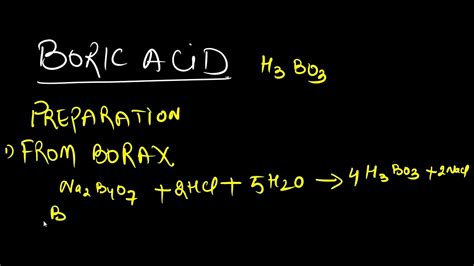 BORIC ACID H3BO3
PREPARATION
1) FROM BORAX
Na2B4O7 + 2HCl + 5H2O → 4H3BO3 + 2NaCl
B